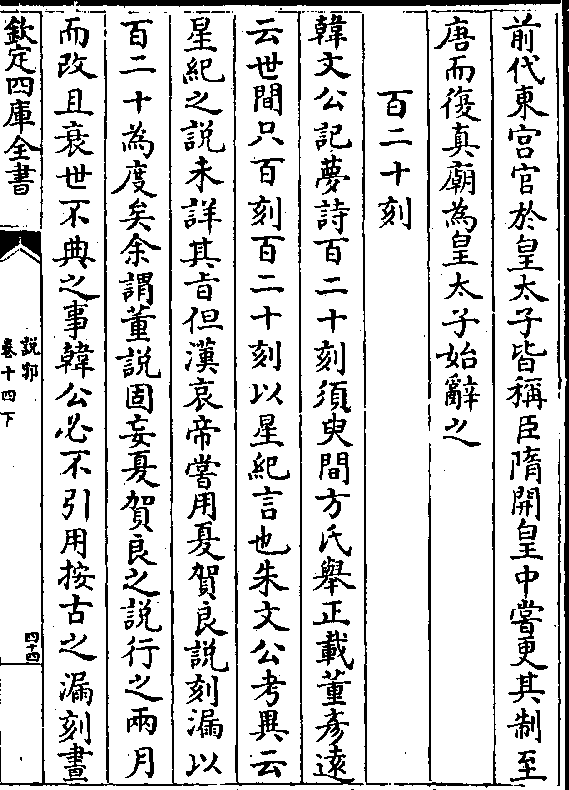 前代東宫官於皇太子皆稱臣隋開皇中嘗更其制至
唐而復真廟為皇太子始辭之
百二十刻
韓文公記夢詩百二十刻須臾間方氏舉正載董彦遠
云世間只百刻百二十刻以星紀言也朱文公考異云
星紀之説未詳其㫖但漢哀帝嘗用夏賀良説刻漏以
百二十為度矣余謂董説固妄夏賀良之説行之兩月
而改且衰世不典之事韓公必不引用按古之漏刻晝
欽定四庫全書
説郛
卷十四下
四十四